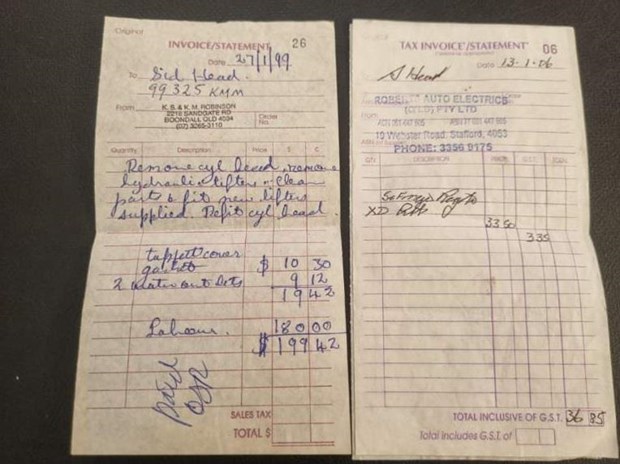 Original
INVOICE/STATEMENT 26
Date 27/1/99
To Sid Head.
99325 KMM
From K. S. & K. M. ROBINSON
2218 SANDGATE RD
BOONDALL QLD 4034
(07) 3265-3110
Order No.
Quantity Description Price $ C
Remove cyl head, remove
hydraulic lifters. Clean
parts & fit new lifters
supplied. Refit cyl head.
tappett cover
gasket $ 10 30
2 9 12
19 42
Labour. 180 00
$ 199 42
Paid
SALES TAX
TOTAL $
Original
TAX INVOICE*/STATEMENT* 06
Date 13-1-06
S Head
AUTO ELECTRICS
(QLD) PTY LTD
19 Webster Road, Stafford, 4053
PHONE: 3356 9175
QTY. DESCRIPTION PRICE G.S.T. TOTAL
XD
33 50
3 35
TOTAL INCLUSIVE OF G.S.T. 36 85
Total includes G.S.T. of